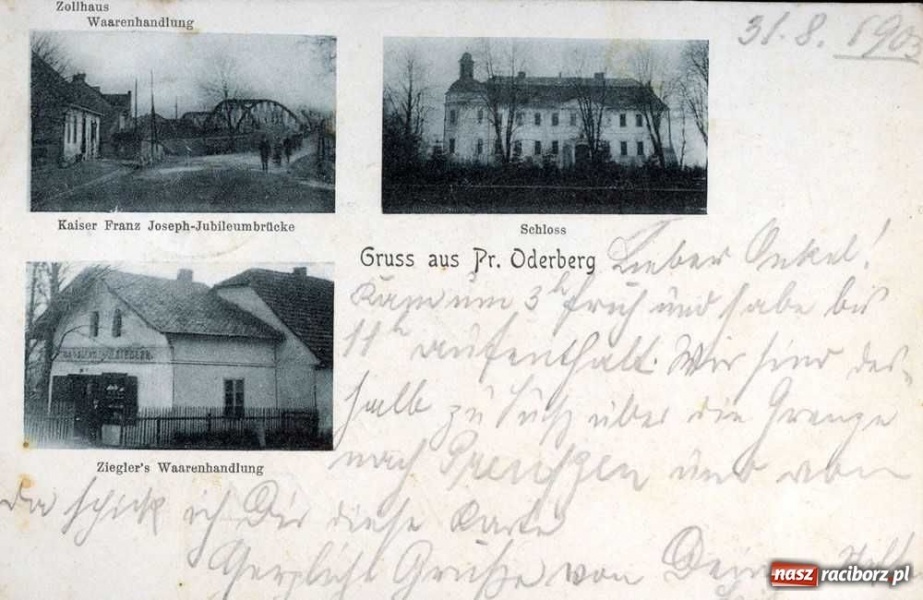 Zollhaus
Waarenhandlung
31. 8. 190
Kaiser Franz Joseph-Jubileumbrücke
Schloss
Gruss aus Pr. Oderberg
Lieber Onkel!
Kam um 3h früh und habe bis
11h aufenthalt. Wir sind des-
halb zu Fuß über die Grenze
nach Preußen und von
da schick ich Dir diese Karte
Herzliche Grüße von Deinem
Ziegler's Waarenhandlung
nasz raciborz.pl